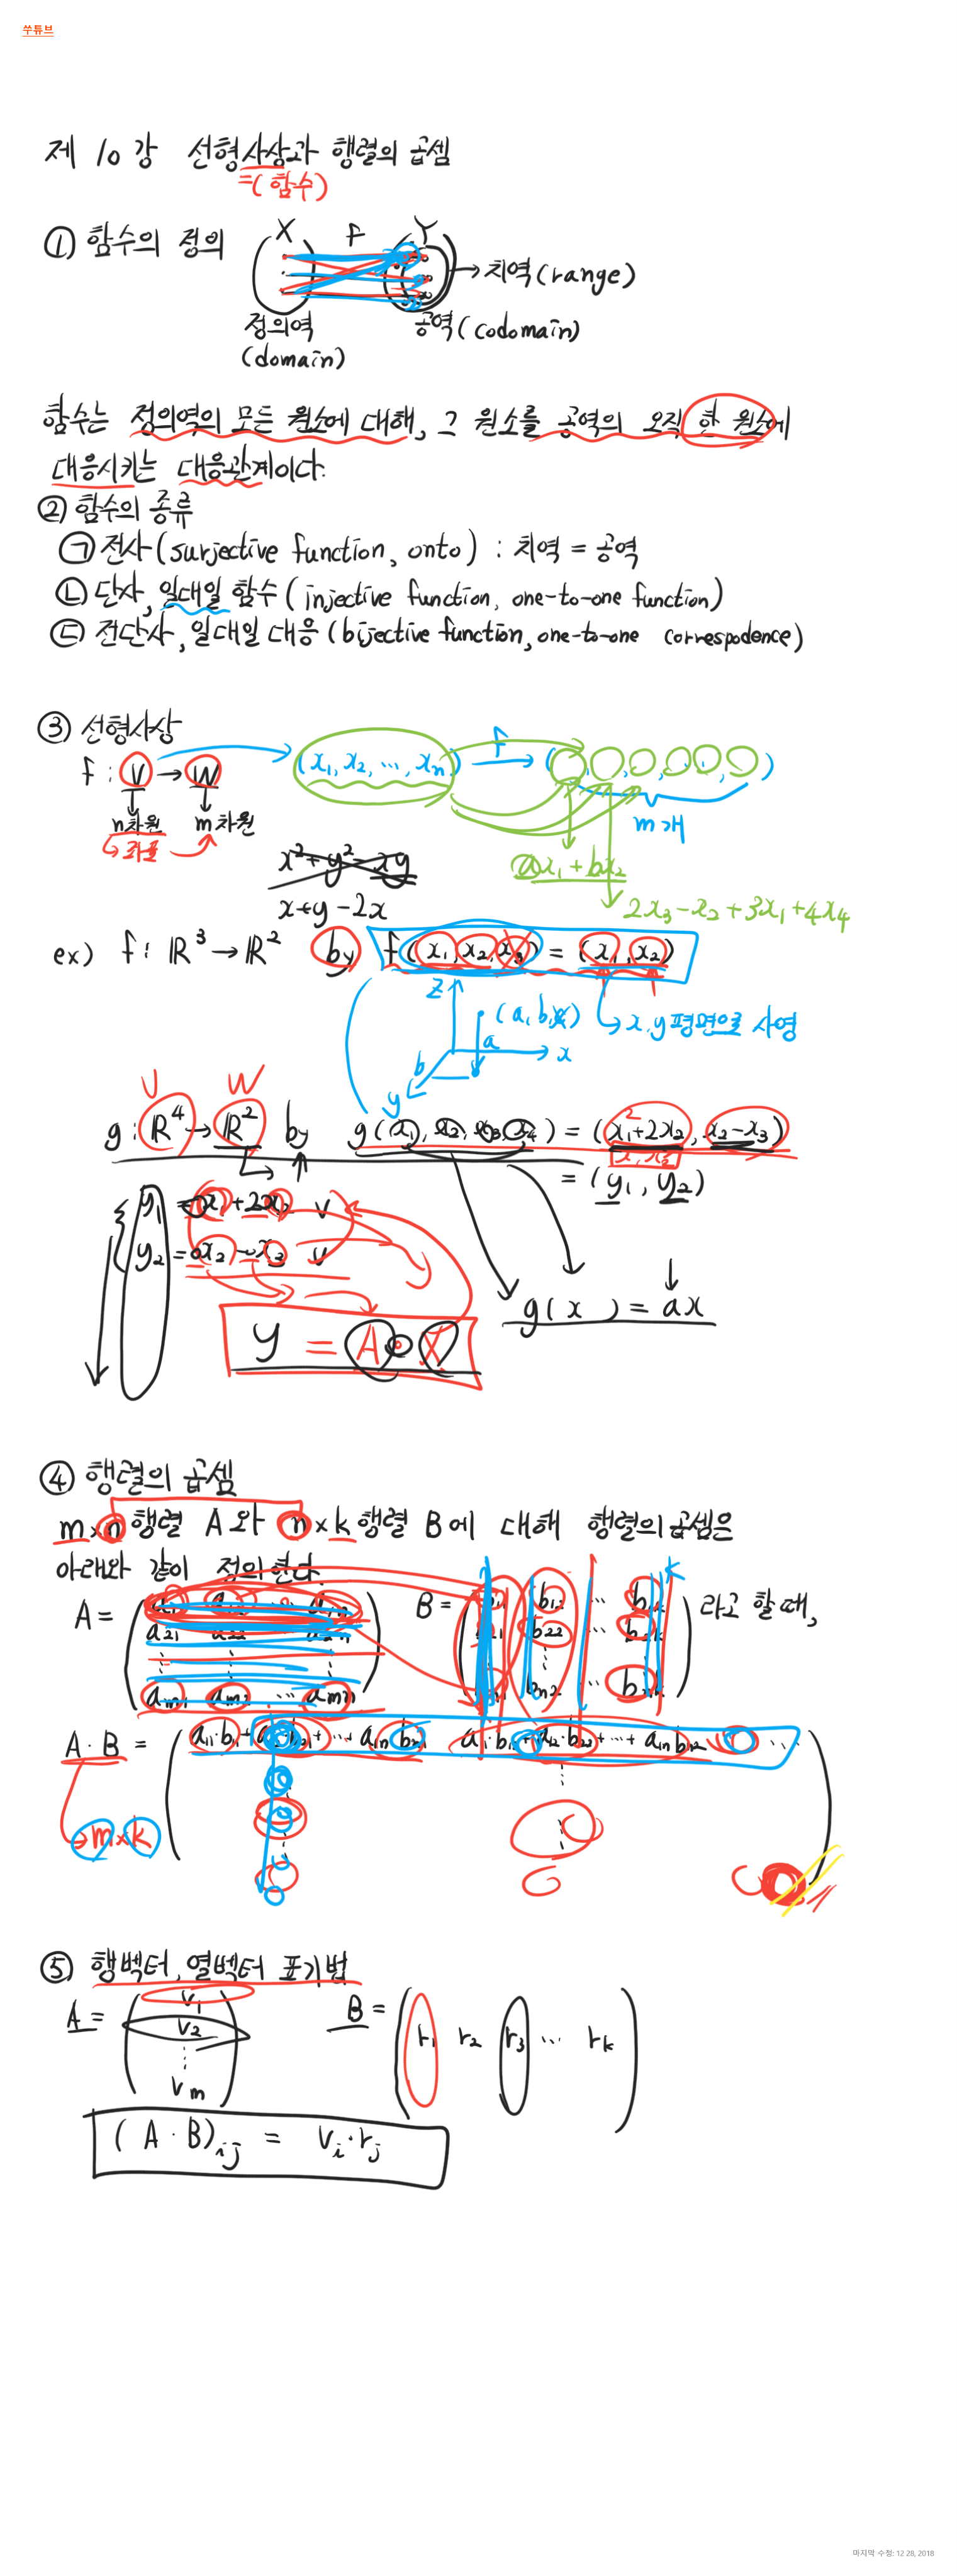 쑤튜브
제 10강 선형사상과 행렬의 곱셈
=(함수)
① 함수의 정의
X f Y
→ 치역(range)
정의역 공역(codomain)
(domain)
함수는 정의역의 모든 원소에 대해, 그 원소를 공역의 오직 한 원소에
대응시키는 대응관계이다.
② 함수의 종류
㉠ 전사(surjective function, onto) : 치역 = 공역
㉡ 단사, 일대일 함수(injective function, one-to-one function)
㉢ 전단사, 일대일 대응(bijective function, one-to-one correspodence)
③ 선형사상
f : V → W
(x₁, x₂, ⋯, xₙ) f→ ( , , , , , )
n차원 m차원
m개
좌표
ax₁ + bx₂
x² + y² - xy
x + y - 2x
2x₃ - x₂ + 3x₁ + 4x₄
ex) f : ℝ³ → ℝ² by f(x₁, x₂, x₃) = (x₁, x₂)
z
(a, b, c)
→ x, y 평면으로 사영
a
b
x
y
V W
g : ℝ⁴ → ℝ² by g(x₁, x₂, x₃, x₄) = (x₁ + 2x₂, x₂ - x₃)
= (y₁, y₂)
y₁ = x₁ + 2x₂
y₂ = x₂ - x₃
g(x) = ax
y = A · X
④ 행렬의 곱셈
m×n 행렬 A와 n×k 행렬 B에 대해 행렬의 곱셈은
아래와 같이 정의한다.
A = ( a₁₁ a₁₂ ⋯ a₁ₙ B = ( b₁₁ b₁₂ ⋯ b₁ₖ ) 라고 할 때,
a₂₁ a₂₂ a₂ₙ b₂₁ b₂₂ ⋯ b₂ₖ
aₘ₁ aₘ₂ ⋯ aₘₙ ) bₙ₁ bₙ₂ ⋯ bₙₖ
A · B = ( a₁₁·b₁₁ + a₁₂·b₂₁ + ⋯ a₁ₙ bₙ₁ a₁₁·b₁₂ + a₁₂·b₂₂ + ⋯ + a₁ₙ bₙ₂ ⋯ )
→ m×k
⑤ 행벡터, 열벡터 표기법
A = ( v₁ B = ( r₁ r₂ r₃ ⋯ rₖ )
v₂
⋮
vₘ )
(A · B)ᵢⱼ = vᵢ · rⱼ
마지막 수정: 12 28, 2018